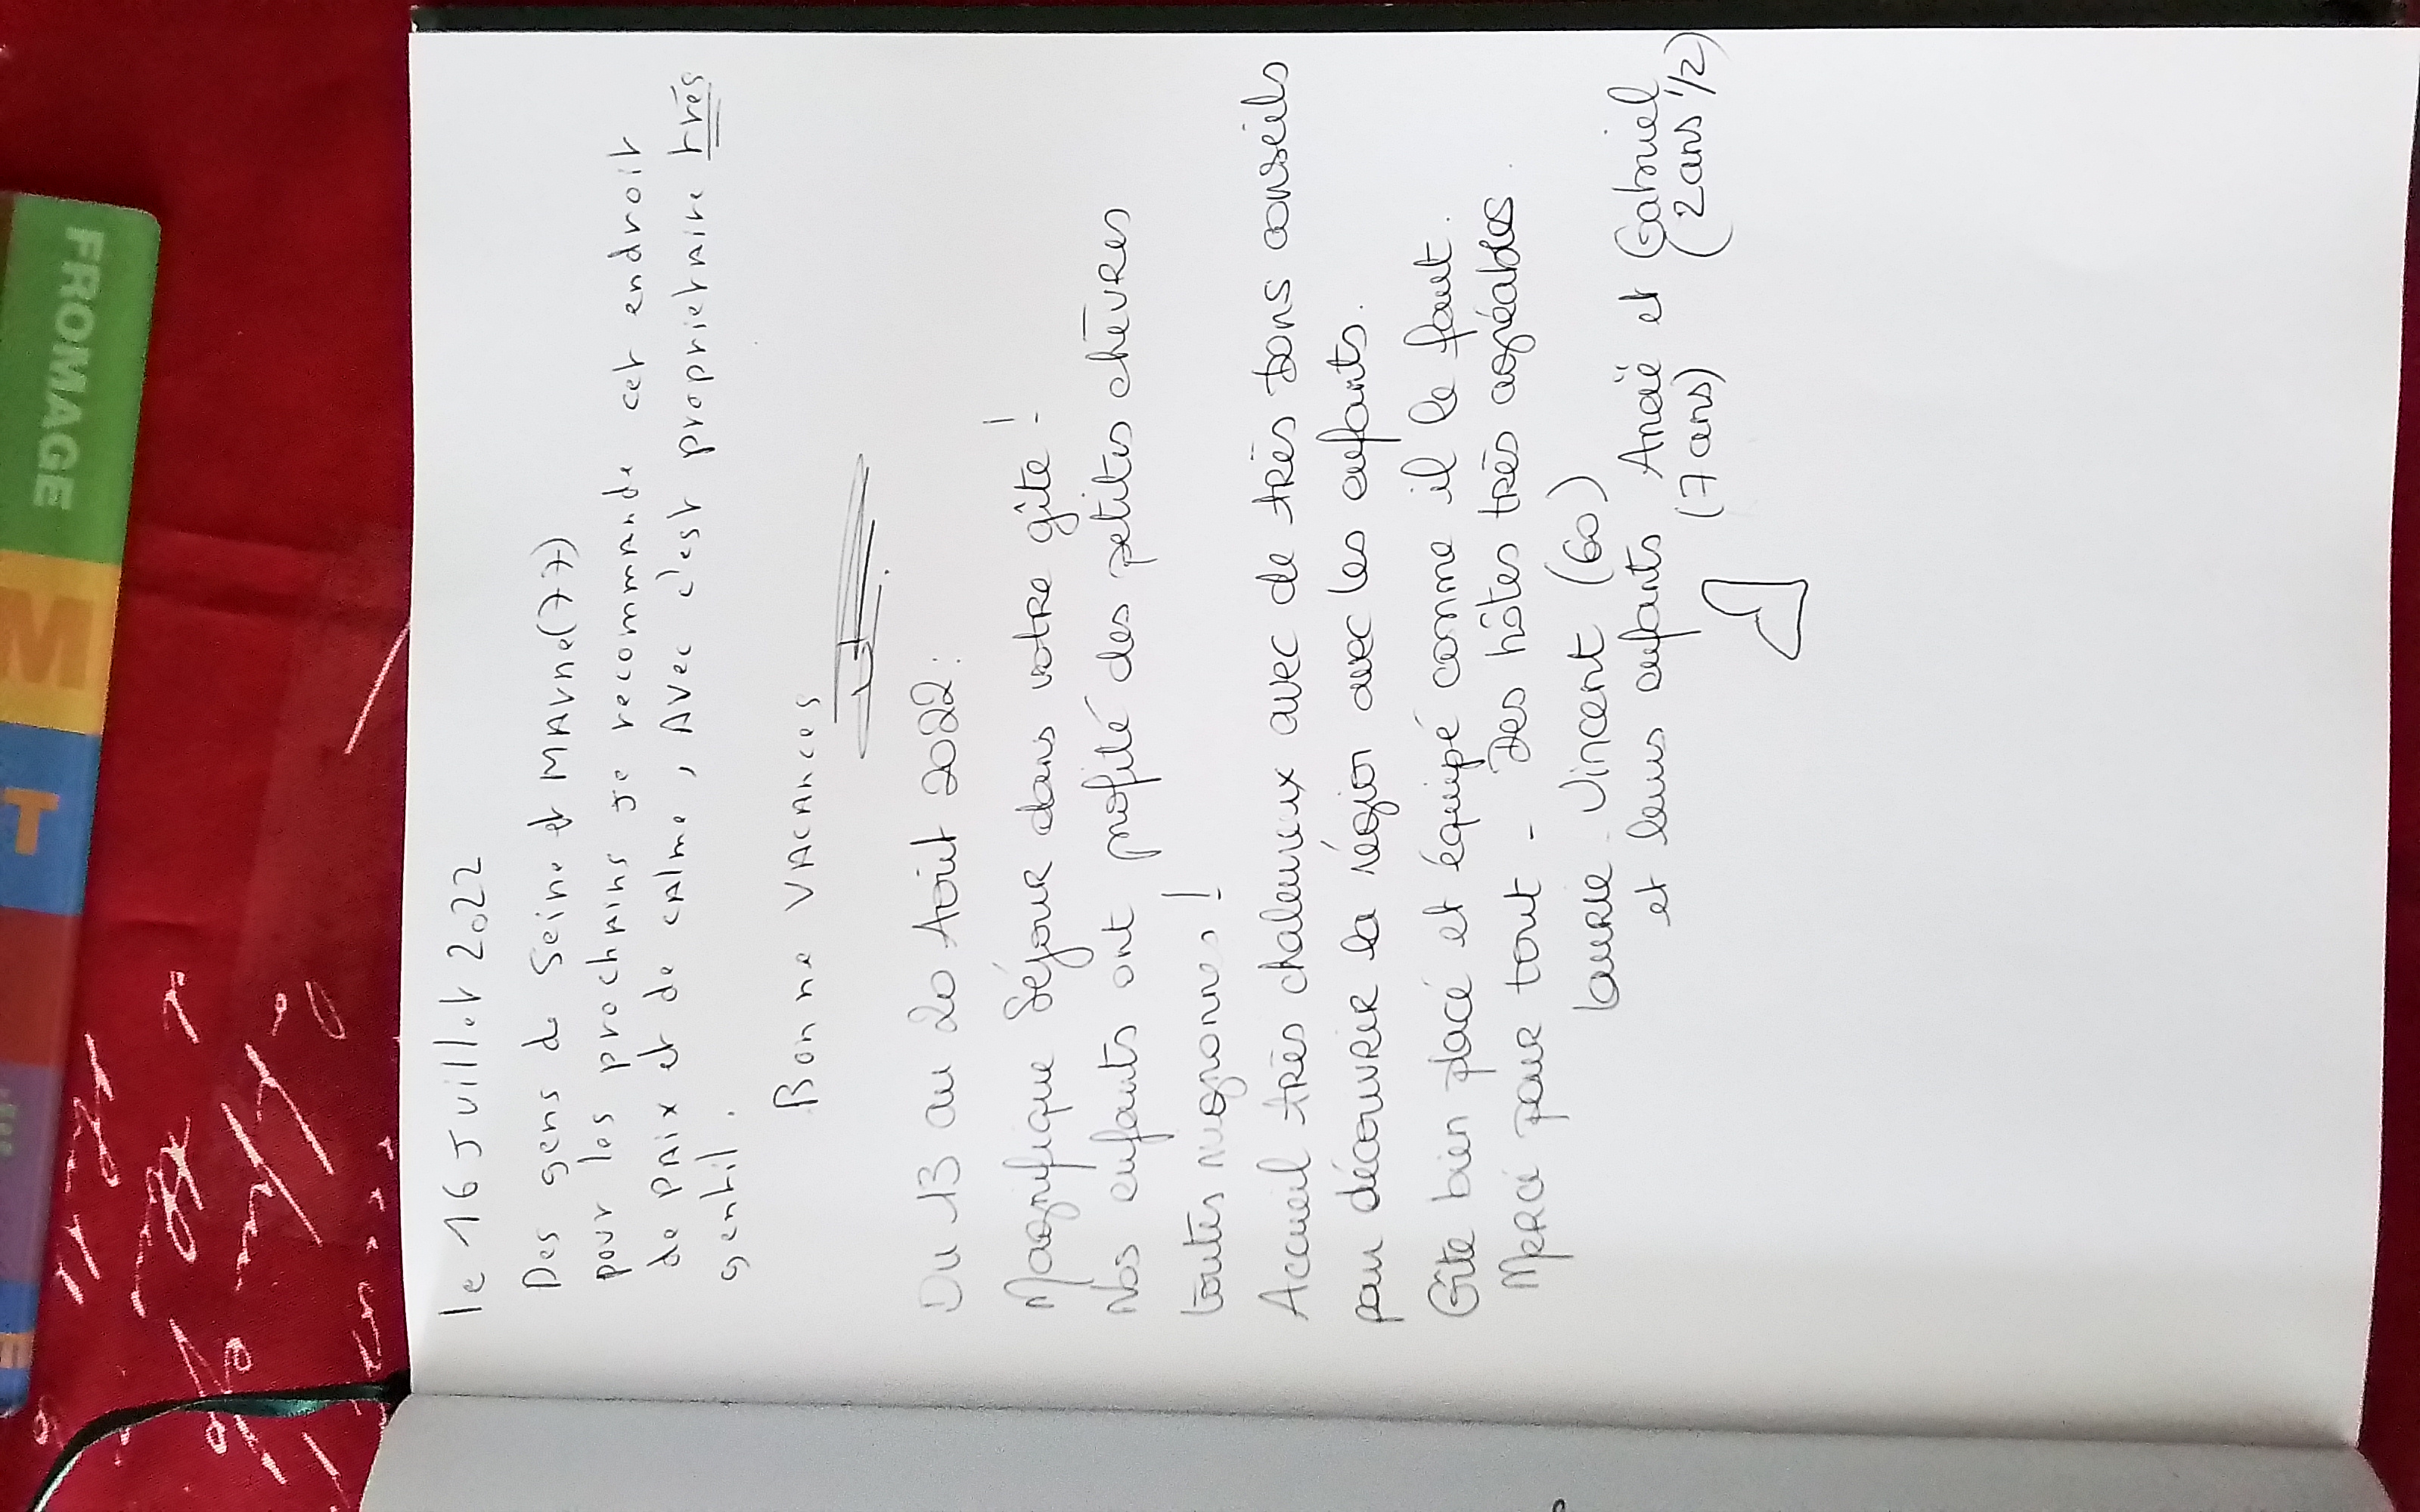 le 16 Juillet 2022
Des gens de Seine et MArne(77)
pour les prochains je recommande cet endroit
de pAix et de cAlme, Avec c'est proprietAire très
gentil.
Bonne VAcAnces
Du 13 au 20 Août 2022:
Magnifique Séjour dans votre gîte!
Nos enfants ont profité des petites chèvres
toutes mignonnes!
Accueil très chaleureux avec de très bons conseils
pour découvrir la région avec les enfants.
Gîte bien placé et équipé comme il le faut.
Merci pour tout - Des hôtes très agréables.
Laurie. Vincent (60)
et leurs enfants et Gabriel
(7 ans) (2ans 1/2)
FROMAGE
MT